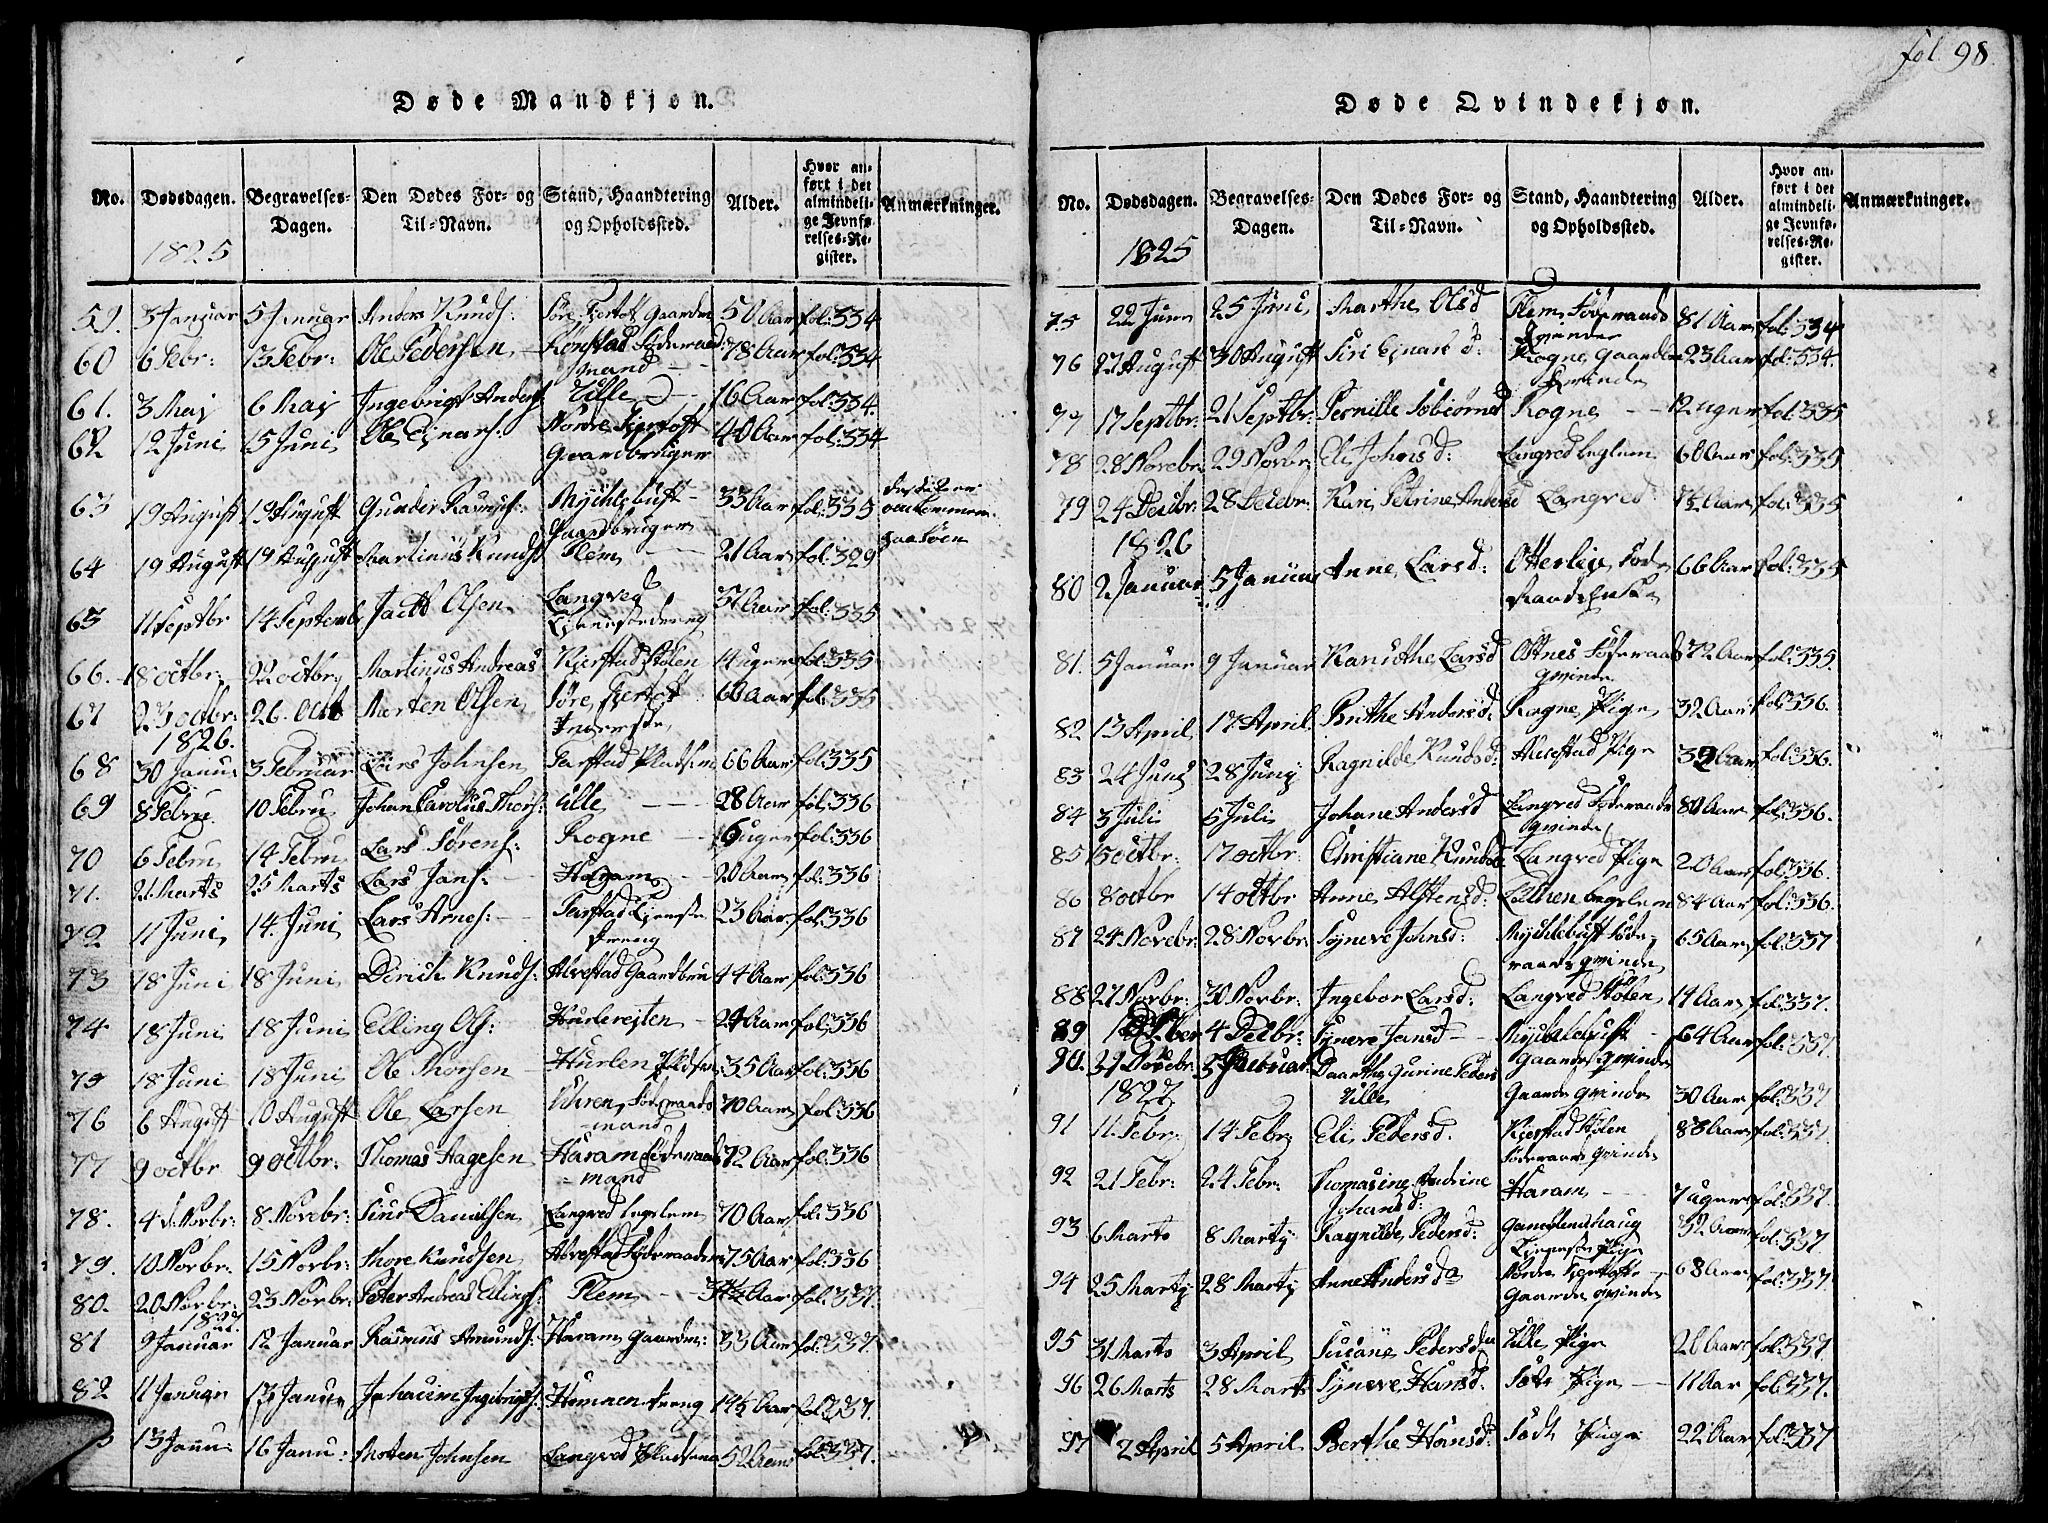 fol 98.
Døde Mandkjøn.
No. Dødsdagen. Begravelses-Dagen. Den Dødes For- og Til-Navn. Stand, Haandtering og Opholdssted. Alder. Hvor anført i det almindelige Jevnførelses-Register. Anmærkninger.
1825
59. 3 Januar 5 Januar Anders Knuds: Søre Fjertoft Gaardm 50 Aar fol: 334
60 6 Febr: 13 Febr: Ole Pedersen Rønstad Føderaad: 78 Aar fol: 334
mand
61. 3 Maj 6 Maj Ingebrigt Anders: Ulle 16 Aar fol: 334.
62 12 Juni 15 Juni Ole Ejnars: Nordre Fjertoft 40 Aar fol: 334
Gaardbruger
63 19 August 19 August Gunder Rasmus: Myklebust 33 Aar fol: 335
Gaardbruger paa Søen
64 19 August 19 August Martinus Knuds: Flem 21 Aar fol: 329
65 11 Septbr 14 Septembr Jacob Olsen Langved 31 Aar fol: 335
Tjenestedreng
66. 18 octbr: 22 octbr: Martinus Andreas Kjerstad Stølen 14 uger fol: 335
67 23 octbr: 26. Octb Morten Olsen Søre Fjertoft 60 Aar fol: 335
Inderste
1826.
68 30 Janu: 3 Februar Lars Johnsen Tarstad Pladsm 66 Aar fol: 335
69 8 Febru 10 Febru Johan Carolus Thors: Ulle 28 Aar fol: 336
70 6 Febru 14 Febru Lars Sørens: Rogne 6 uger fol: 336
71. 21 Marts 25 Marts Lars Jans: Haram 20 Aar fol: 336
72 11 Juni 14. Juni Lars Arnes: Tarstad Tjeneste 23 Aar fol: 336
dreng
73 18 Juni 18 Juni Diderich Knuds: Alvestad Gaardbru 44 Aar fol: 336
74 18 Juni 18 Juni Elling Ols: Hurlenejten 24 Aar fol: 336
75 18 Juni 18 Juni Ole Thorsen Hurlen Pladsm 35 Aar fol: 336
76 6 August 10 August Ole Larsen Uhren, Føderaads 70 Aar fol: 336
mand
77 9 octbr 9 octbr: Thomas Hagesen Haram Føderaad 72 Aar fol: 336
mand
78. 4 Novbr: 8 Novebr: Siur Danielsen Langved Legslem 70 Aar fol: 336
79. 10 Novbr: 15 Novbr: Thore Knudsen Alvestad Føderaadsm 75 Aar fol: 336
80. 20 Novbr: 23 Novbr: Peter Andreas Ellings: Flem 3½ Aar fol: 337.
1827.
81 9 Januar 12 Januar Rasmus Amunds: Haram, Gaardm: 33 Aar fol: 337.
82 11 Januar 13 Janua Johacim Ingebrigts: Hamnen dreng 14½ Aar fol 337.
3 13 Janu: 16 Janu: Morten Johnsen Langved Pladsm 52 Aar fol: 337.
Døde Qvindekjøn.
No. Dødsdagen. Begravelses-Dagen. Den Dødes For- og Til-Navn. Stand, Haandtering og Opholdssted. Alder. Hvor anført i det almindelige Jevnførelses-Register. Anmærkninger.
1825
75 22 Juni 25 Juni Marthe Olsd Flem Føderaads 81 Aar fol: 334
Qvinde
76 27 August 30 August Siri Ejnarsd: Rogne Gaard 23 Aar fol: 334.
Qvinde
77 17 Septbr: 21 Septbr: Pernille Tobiasd Rogne 12 uger fol: 335
78 28 Novebr 29 Novbr: Eli Johnsd: Langved Legslem 60 Aar fol: 335
79 24 Decbr 28 Decbr: Kari Petrine Andersd Langved 1½ Aar fol: 335
1826
80 2 Januar 5 Januar Anne Larsd: Otterleje, Føde 66 Aar fol: 335
raads Enke
81. 5 Januar 9 Januar Kanuthe Larsd Ostnes Føderaads 72 Aar fol: 335.
qvinde
82 13 April 17 April Brithe Andersd: Rogne Pige 32 Aar fol: 336.
83 24 Juni 28 Juny Ragnilde Knudsd: Alvestad Pige 32 Aar fol: 336.
84 3 Juli 5 Juli Johane Andersd Langved Føderaads 80 Aar fol: 336.
qvinde
85 15 octbr: 17 octbr: Christiane Knudsd Langved Pige 20 Aar fol: 336.
86 8 octbr 14 octbr Anne Alstensd: Legslem 84 Aar fol: 336.
87 24 Novebr: 28 Novbr Synneve Johnsd: Myklebust Føde- 65 Aar fol: 337
raads qvinde
88 27 Novbr: 30 Novbr: Ingebor Larsd: Langved Stølen 14 Aar fol: 337.
89 1 Decber 4 Decbr: Synneve Jensd Myklebust 64 Aar fol: 337.
Gaards qvinde
90. 29 Decebr: 5 Januar Daarthe Gurine Peders
1827 Ulle Gaards qvinde 30 Aar fol: 337
91 11. Febr: 14 Febr Eli Pedersd: Kjerstad Stølen 83 Aar fol: 337.
Føderaads qvinde
92 21 Febr: 24 Febr: Thomasine Andrine Haram 7 uger fol: 337.
Johansd:
93 6 Marts 8 Marty Ragnilde Pedersd: Gamlemshaug 32 Aar fol: 337.
Tjeneste Pige
94 25 Marty 28 Marty Anne Andersda Nordre Fjertofte 68 Aar fol: 337.
Gaards qvinde
95 31 Marts 3 April Susane Pedersda Ulle Pige 20 Aar fol: 337.
96 26 Marts 28 Marts Synneve Hansd: Søth Pige 11 Aar fol: 337.
97 2 April 5 April Berthe Hansd: Søth Pige 22 Aar fol: 337